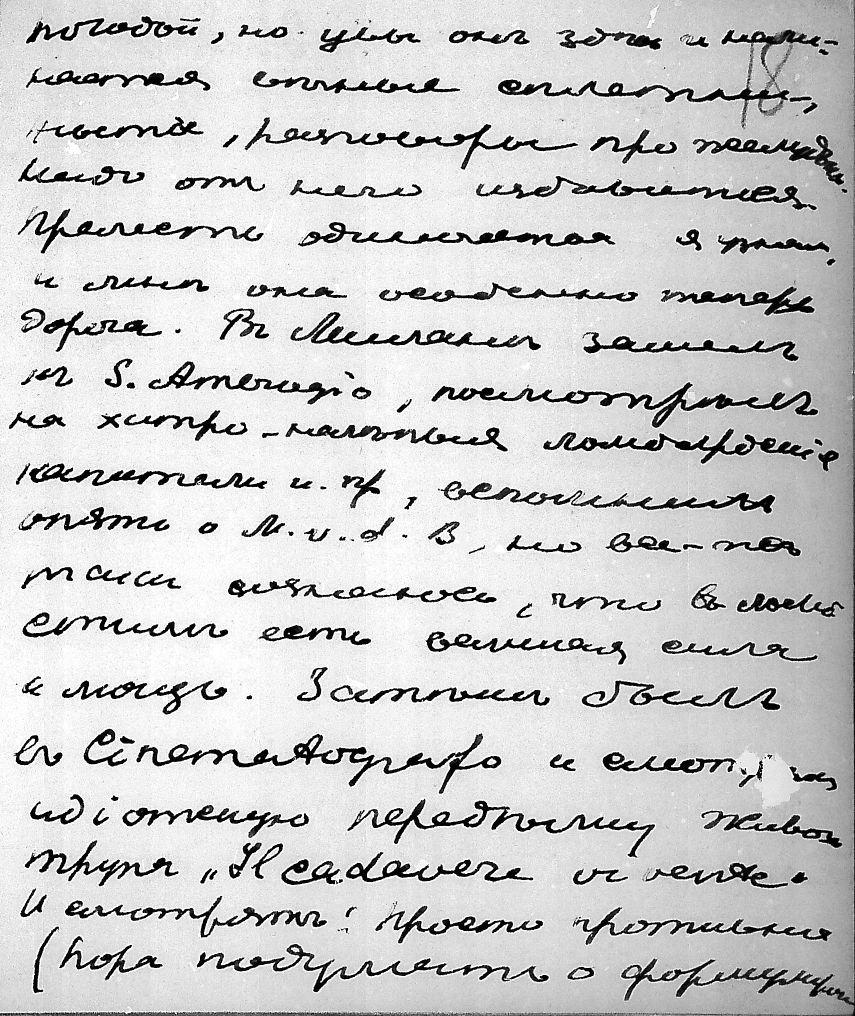 погодой, но увы онъ здѣсь и начи-
наются вѣчныя сплетни,
нытье, разговоры про желудки.
Надо отъ него избавиться.
Прелесть одиночества я узналъ,
и мнѣ она особенно теперь
дорога. Въ Миланѣ зашелъ
къ S. Ambrogio, посмотрѣлъ
на хитро-налѣпныя ломбардскія
капители и пр, вспомнилъ
опять о M. v. d. B, но все-
таки сознаюсь, что въ
стилѣ есть великая сила
и мощь. Затѣмъ былъ
въ Cinematografo и
идіотскую передѣлку Живого
трупа „Il cadavere vivente"
И смотрятъ! просто противно
(Пора подумать о
18